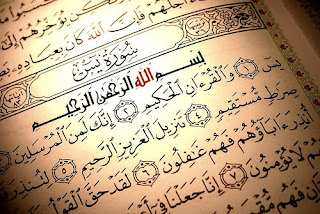 ن يُؤَخِّرُهُمْ إِلَىٰ
أَجَلُهُمْ فَإِنَّ ٱللَّهَ كَانَ بِعِبَادِهِ
سُورَةُ يسٓ
بِسْمِ ٱللَّهِ ٱلرَّحْمَٰنِ ٱلرَّحِيمِ
يسٓ ۝١ وَٱلْقُرْءَانِ ٱلْحَكِيمِ ۝٢ إِنَّكَ لَمِنَ ٱلْمُرْسَلِينَ
صِرَٰطٍ مُّسْتَقِيمٍ ۝٤ تَنزِيلَ ٱلْعَزِيزِ ٱلرَّحِيمِ ۝٥ لِتُنذِرَ
أُنذِرَ ءَابَآؤُهُمْ فَهُمْ غَٰفِلُونَ ۝٦ لَقَدْ حَقَّ ٱلْقَوْلُ
فَهُمْ لَا يُؤْمِنُونَ ۝٧ إِنَّا جَعَلْنَا فِىٓ
فَهُم مُّقْمَحُونَ